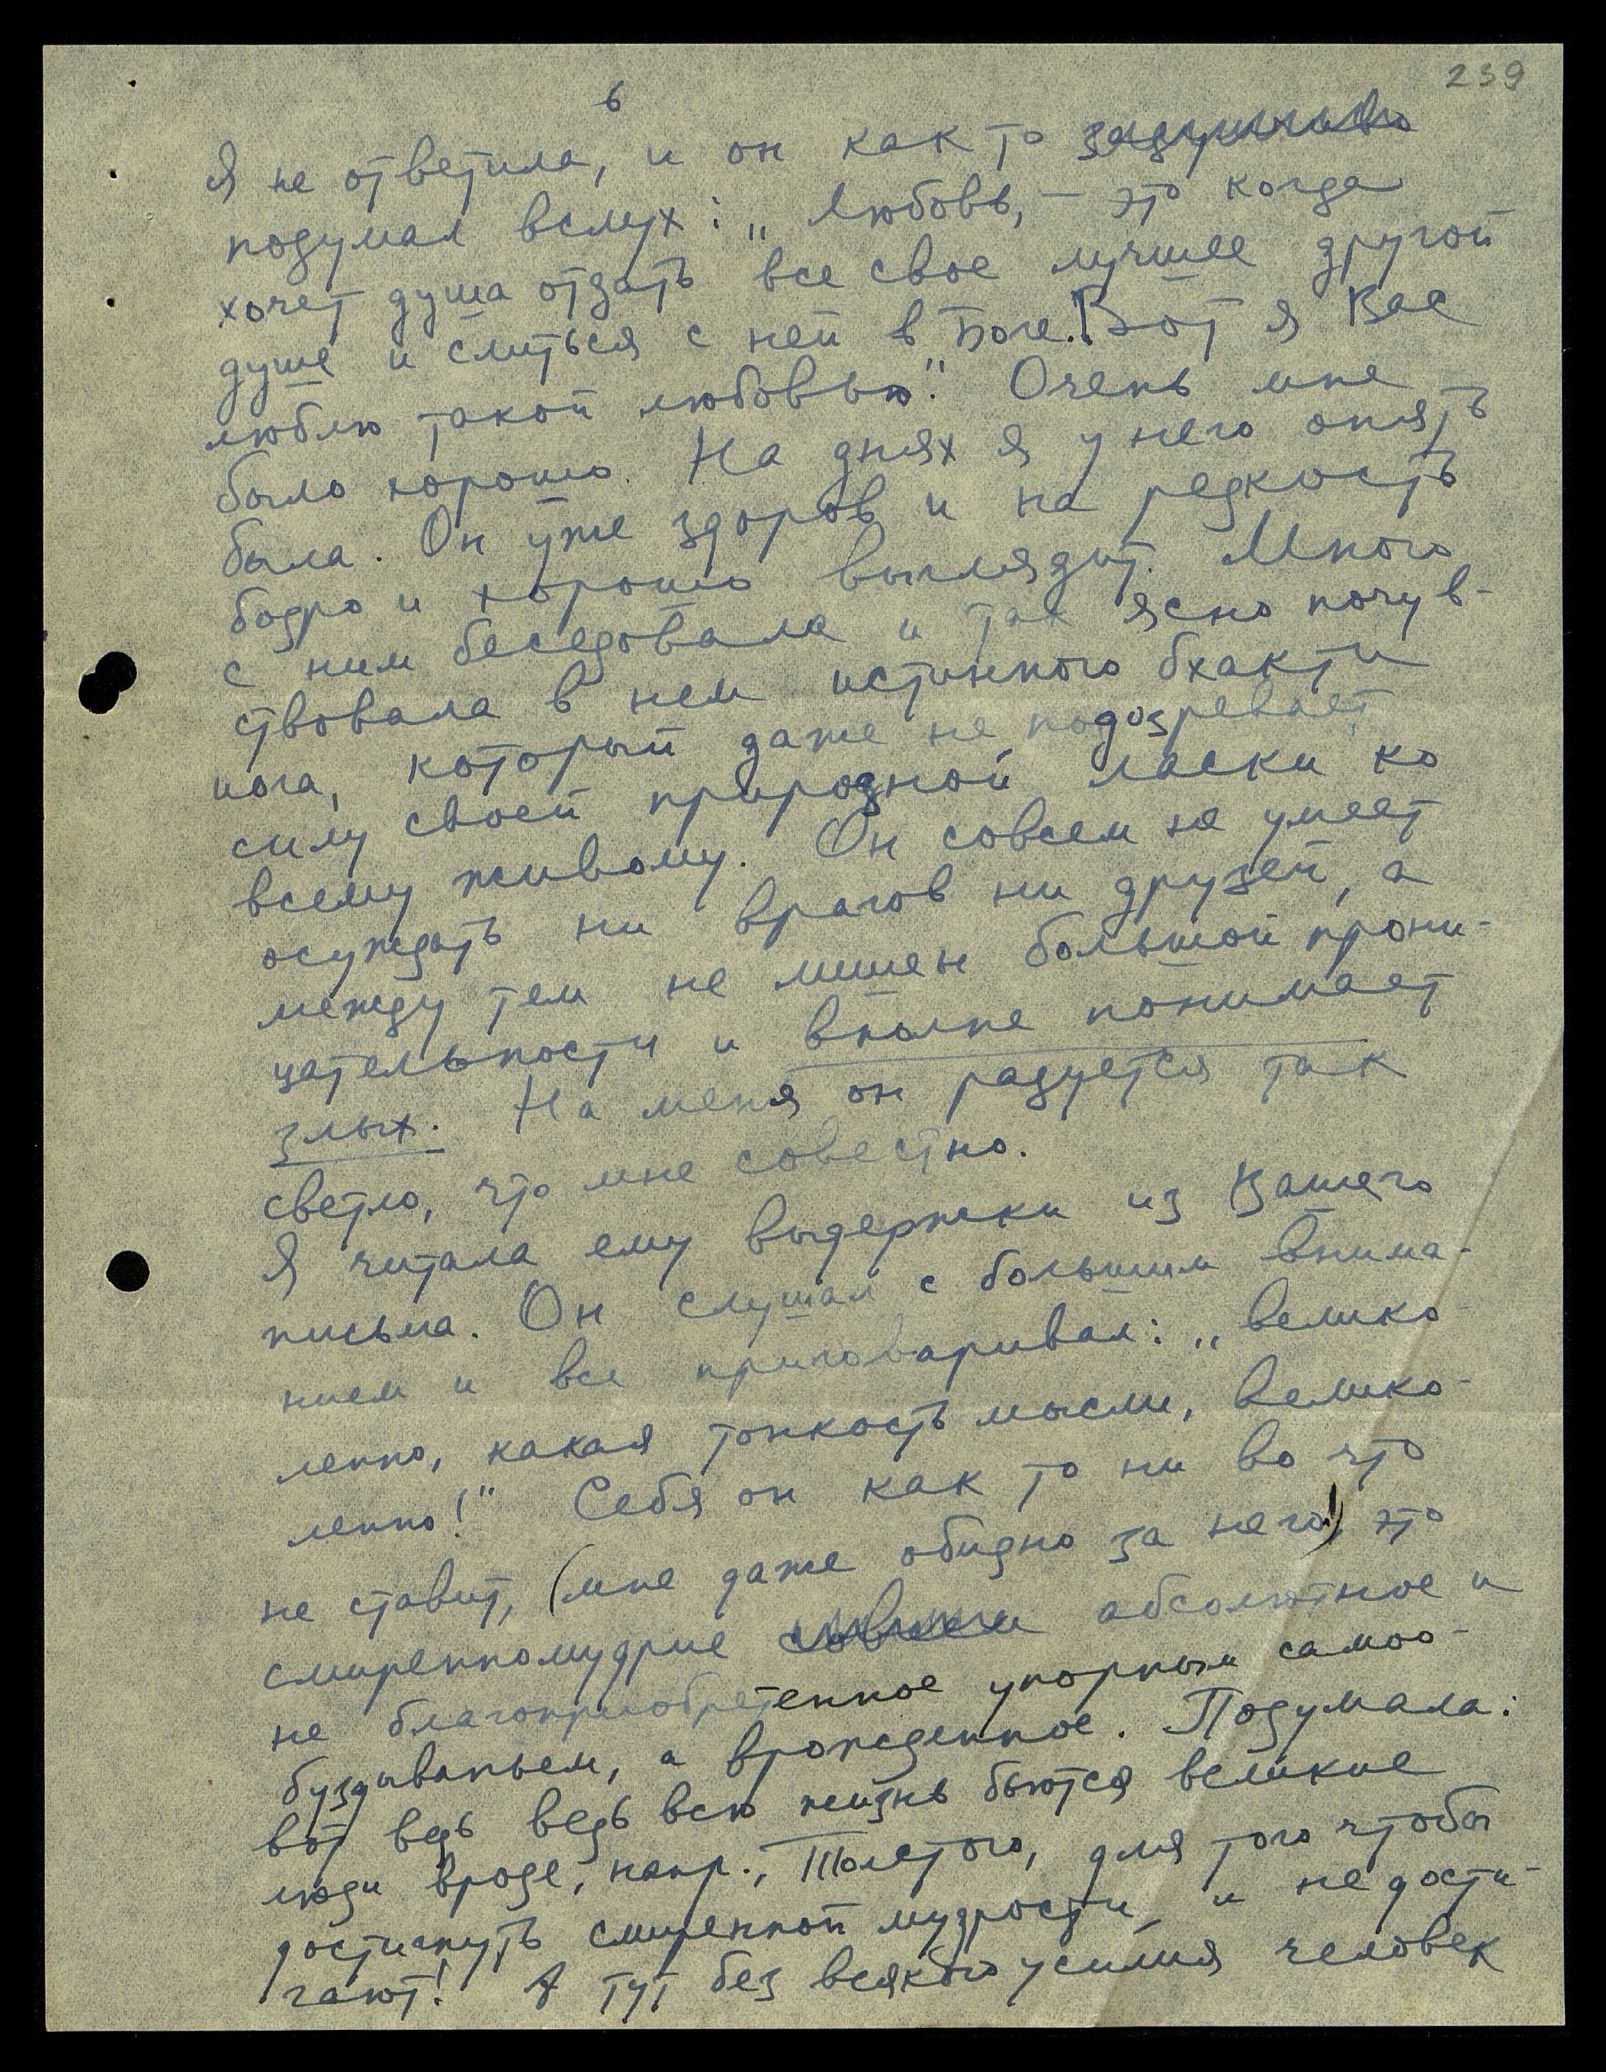 239
6
Я не ответила, и он как то задумчиво
подумал вслух: „Любовь, – это когда
хочет душа отдать все свое лучшее другой
душе и слиться с ней в Боге. Вот я Вас
люблю такой любовью." Очень мне
было хорошо. На днях я у него опять
была. Он уже здоров и на редкость
бодро и хорошо выглядит. Много
с ним беседовала и так ясно почув-
ствовала в нем истинного бхакти
иога, который даже не подозревает
силу своей природной ласки ко
всему живому. Он совсем не умеет
осуждать ни врагов ни друзей, а
между тем не лишен большой прони-
цательности и вполне понимает
злых. На меня он радуется так
светло, что мне совестно.
Я читала ему выдержки из Вашего
письма. Он слушал с большим внима-
нием и все приговаривал: „велико
лепно, какая тонкость мысли, велико-
лепно!" Себя он как то ни во что
не ставит, (мне даже обидно за него!) это
смиренномудрие совсем абсолютное и
не благоприобретенное упорным самоо-
буздываньем, а врожденное. Подумала:
вот ведь ведь всю жизнь бьются великие
люди вроде, напр., Толстого, для того чтобы
достигнуть смиренной мудрости и не дости-
гают! А тут без всякого усилия человек